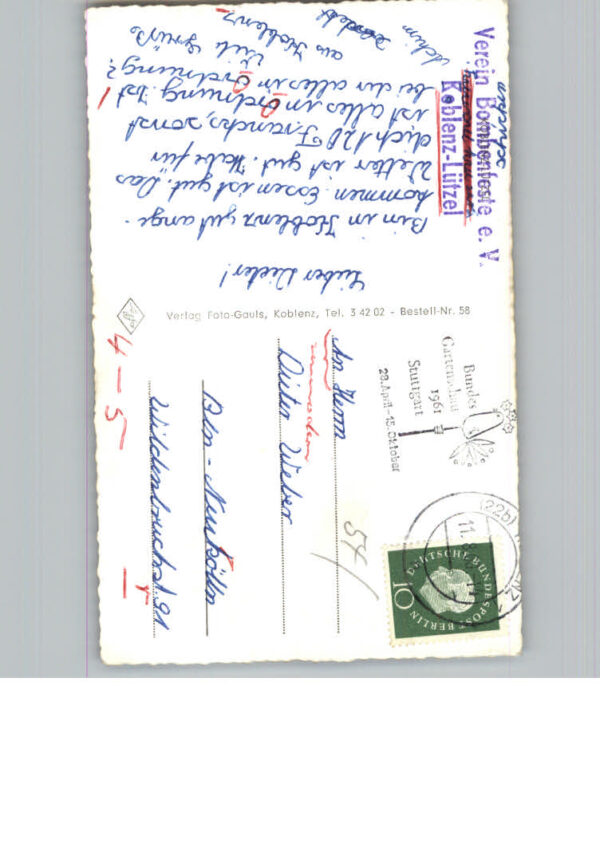 Lieber Dieter!
Bin in Koblenz gut ange-
kommen. Essen ist gut. Das
Wetter ist gut. Habe für
dich 120 Francks, sonst
ist alles in Ordnung. Ist
bei dir alles in Ordnung?
Viele Grüße
aus Koblenz
Achim
Verein Bombenfeste e. V.
Koblenz-Lützel
Verlag Foto-Gauls, Koblenz, Tel. 3 42 02 - Bestell-Nr. 58
Bundes
Gartenschau
1961
Stuttgart
28.April-15.Oktober
(22b)
11.
DEUTSCHE BUNDESPOST BERLIN
10
An Herrn
Dieter Weber
Bln-Neukölln
Wildenbruchst. 91
4-5